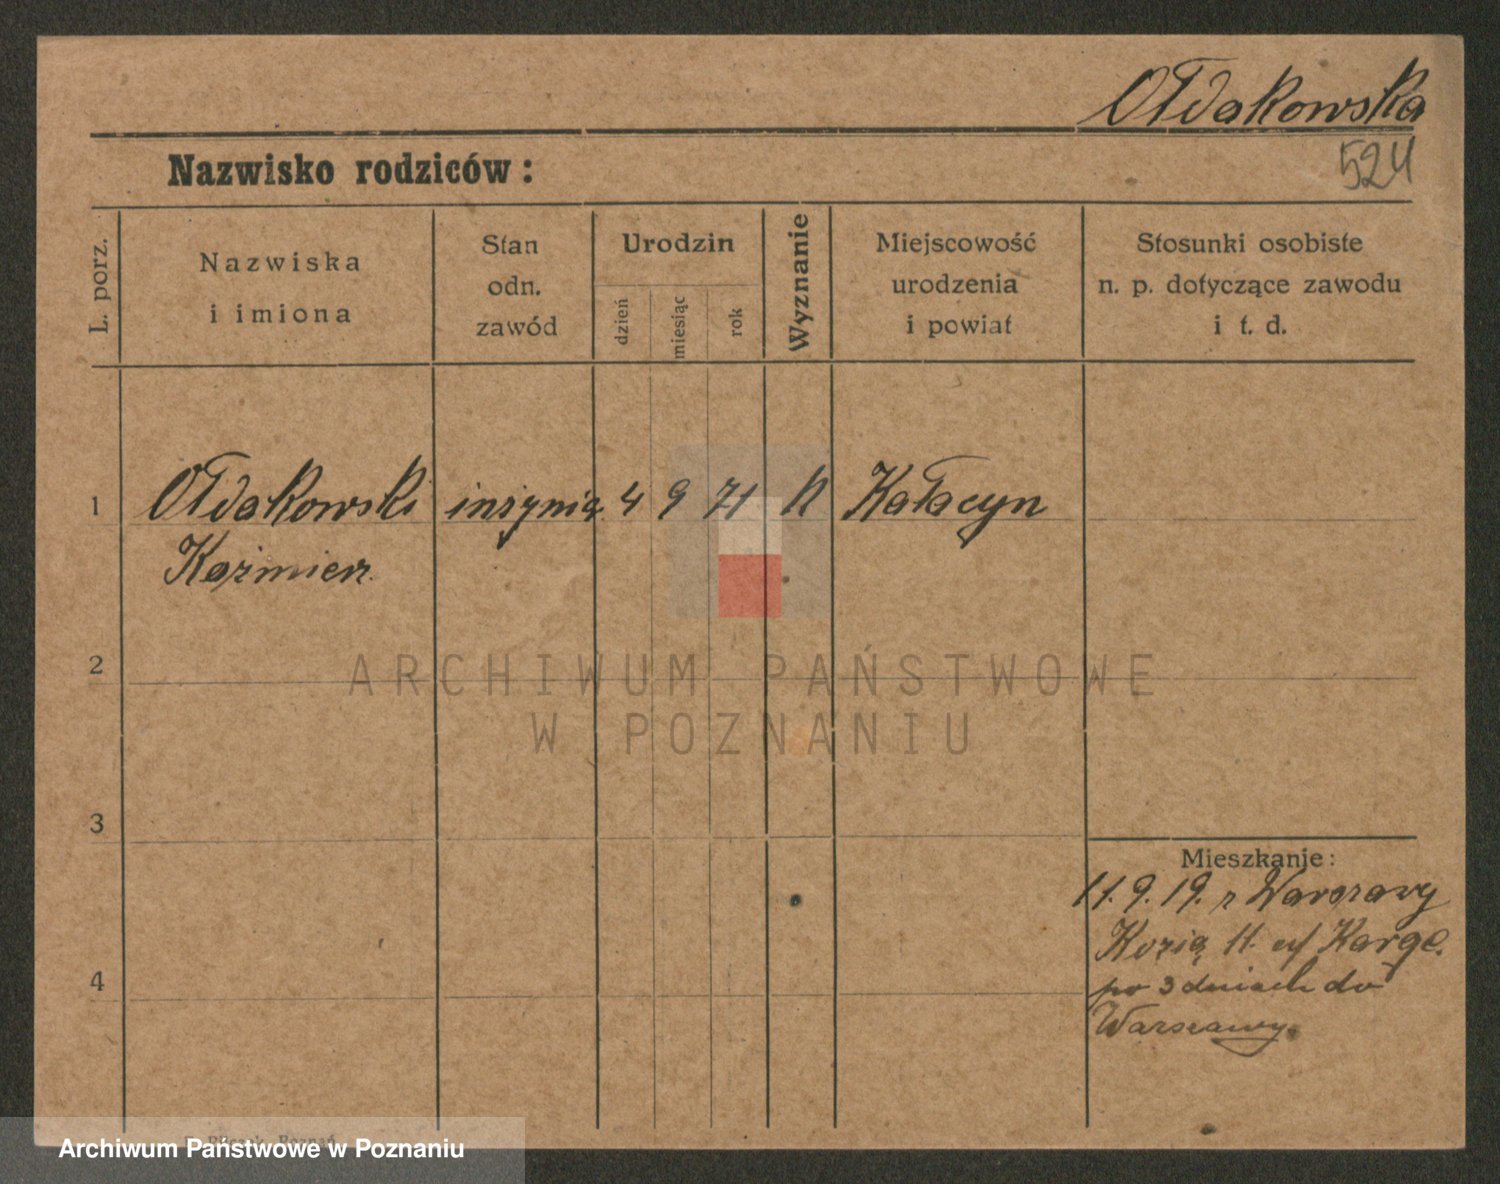 Ołdakowska
Nazwisko rodziców:
524
L. porz.
Nazwiska
i imiona
Stan
odn.
zawód
Urodzin
dzień
miesiąc
rok
Wyznanie
Miejscowość
urodzenia
i powiat
Stosunki osobiste
n. p. dotyczące zawodu
i t. d.
1 Ołdakowski inżynię 4 9 71 K Kałacyn
Kaźmierz
2
ARCHIWUM PAŃSTWOWE
W POZNANIU
3
Mieszkanie:
11.9.19. z Warszawy
Kozia 11
4
po 3 dniach do
Warszawy
Archiwum Państwowe w Poznaniu